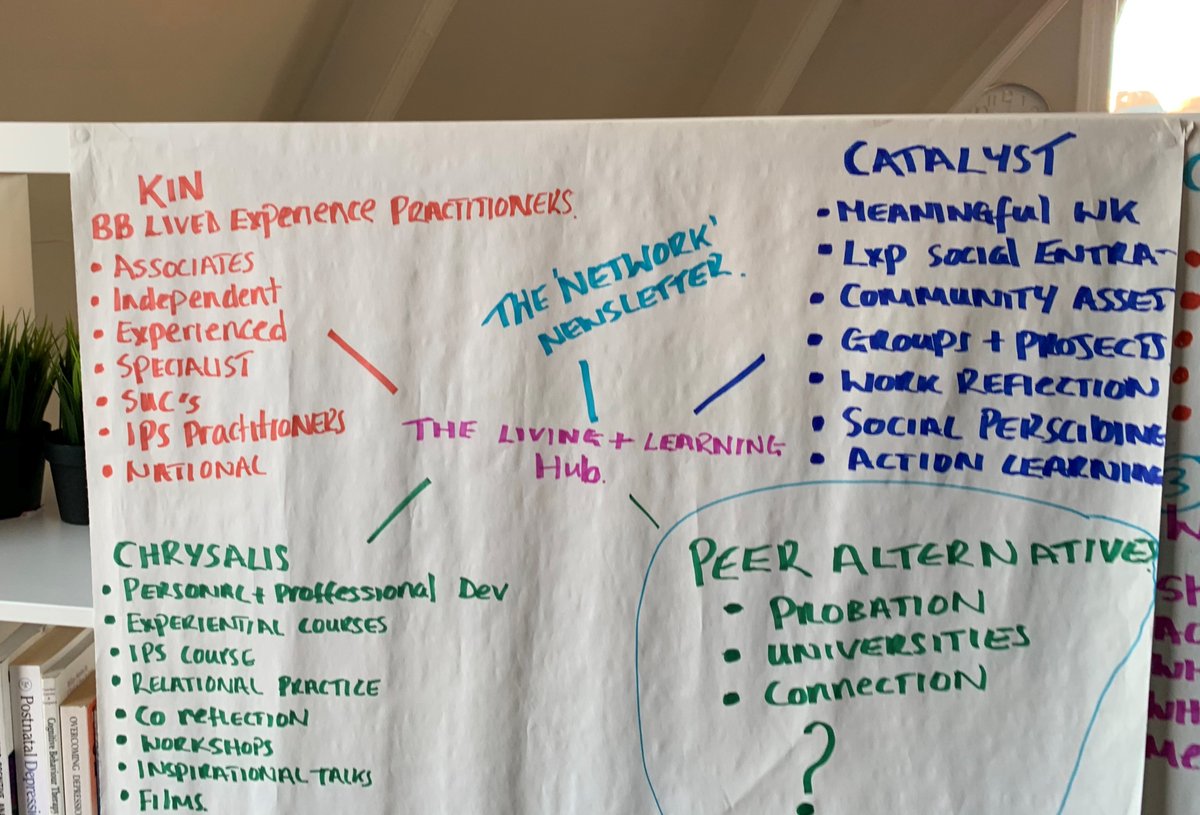 KIN
BB LIVED Experience PRACTITIONERS.
• ASSOCIATES
• Independent
• Experienced
• SPECIALIST
• SUC's
• IPS PractitioNERS
• NATIONAL
THE 'NETWORK'
NEWSLETTER.
CATALYST
• MEANINGful WK
• LXP SOCIAL ENTRA-
• COMMUNITY ASSET
• GROUPS + PROJECTS
• WORK REFLECTION
• SOCIAL PERSCIBING
• ACTION LEARNING
THE LIVING + LEARNING
Hub.
CHRYSALIS
• PERSONAL + Proffessional Dev
• EXPERIENTIAL COURSES
• IPS COURSE
• RELATIONAL PRACTICE
• Co reflection
• WORKSHOPS
• INSPIRATIONAL TALKS
• FILMS.
PEER ALTERNATIVES
• PROBATION
• UNIVERSITIES
• CONNECTION
?
3
SH
AC
WH
WH
Me
Postnatal Depress
Cognitive Behaviour Therapy
OVERCOMING DEPRESSI